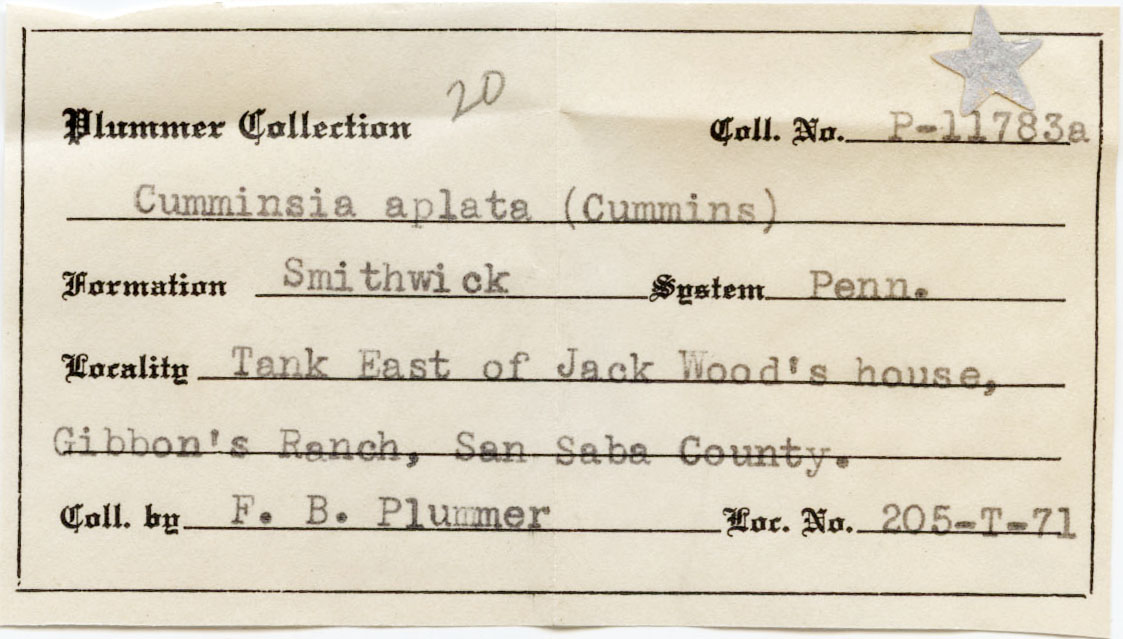 20
Plummer Collection Coll. No. P-11783a
Cumminsia aplata (Cummins)
Formation Smithwick System Penn.
Locality Tank East of Jack Wood's house,
Gibbon's Ranch, San Saba County.
Coll. by F. B. Plummer Loc. No. 205-T-71